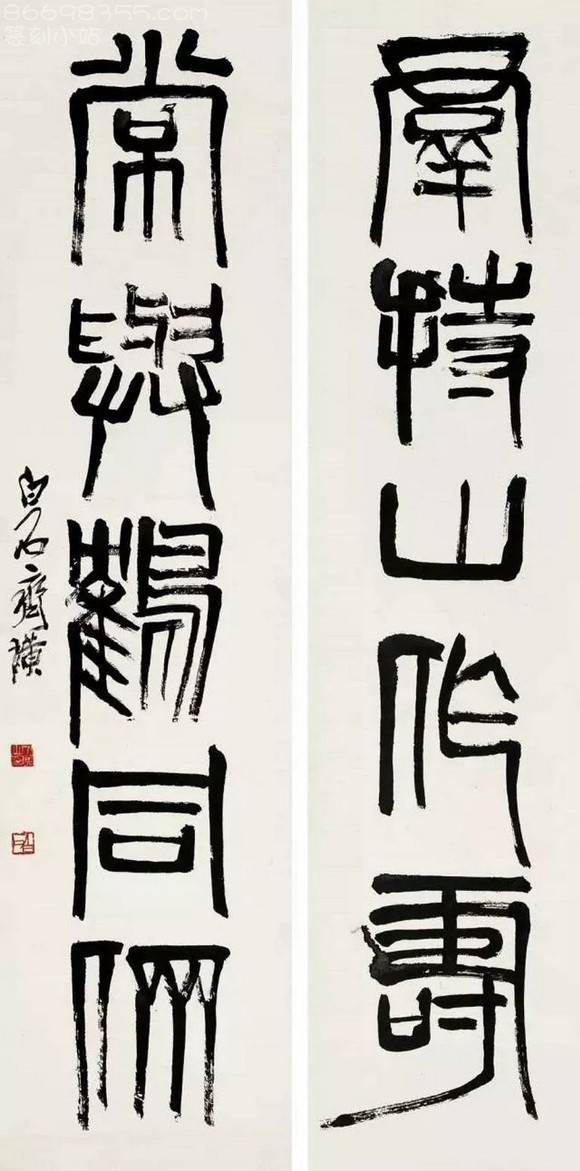 86698355.com
篆刻小站
羣持山作壽
常與鶴同
白石齊璜